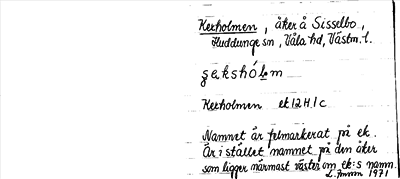 Kexholmen, åker å Sisselbo,
Huddunge sn, Våla hd, Västm. l.
Kexholmen ek 12H1c
Namnet är felmarkerat på ek.
Är i stället namnet på den åker
som ligger närmast väster om ek:s namn.
1971